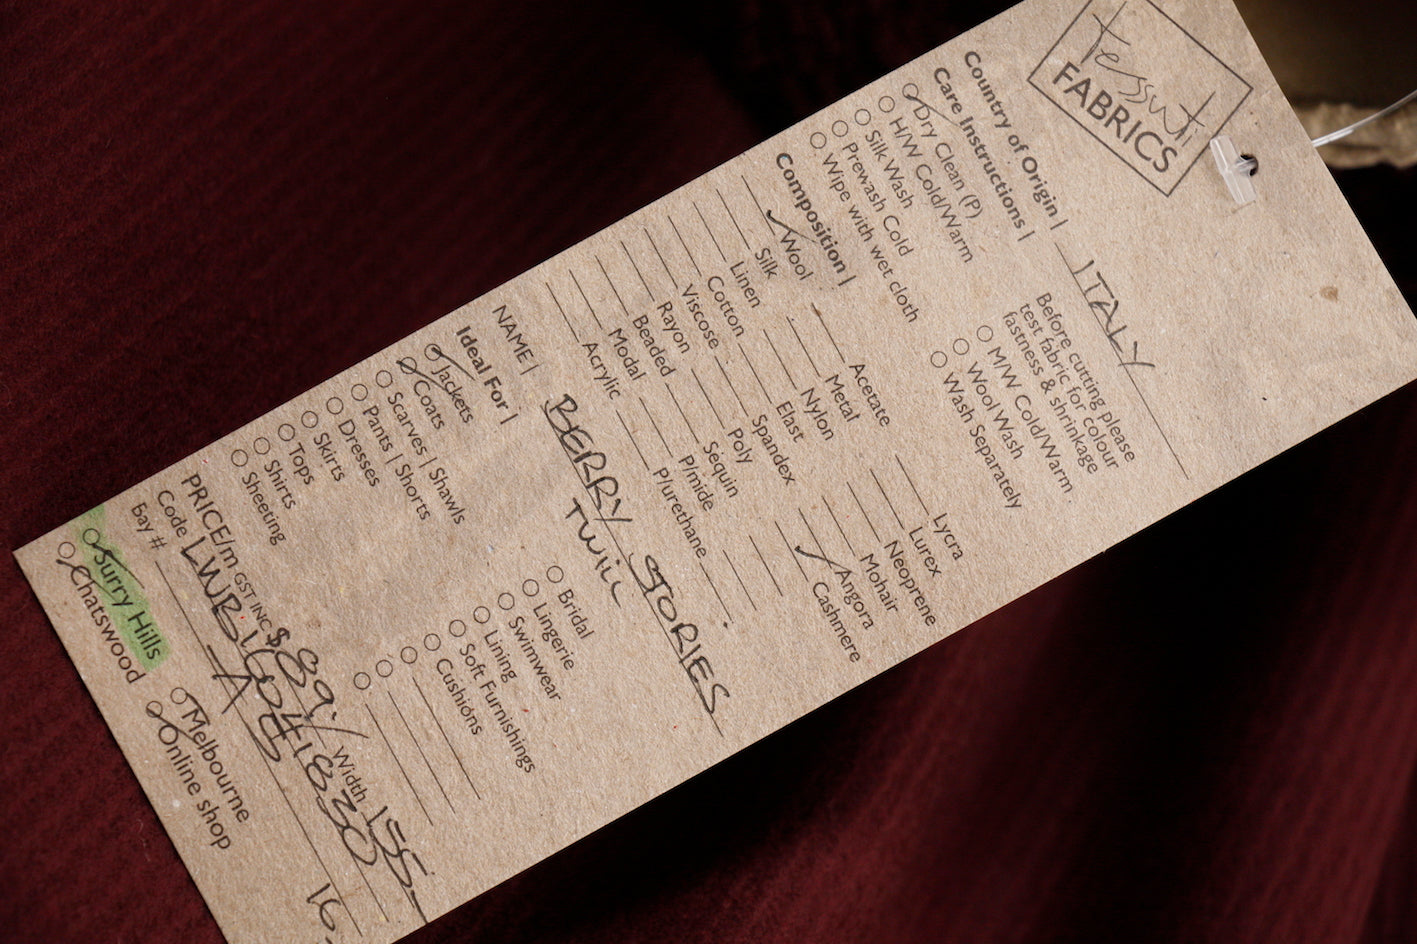 tessuti
FABRICS
Country of Origin | ITALY
Care Instructions |
Dry Clean (P)
H/W Cold/Warm
Silk Wash
Prewash Cold
Wipe with wet cloth
Before cutting please
test fabric for colour
fastness & shrinkage
M/W Cold/Warm
Wool Wash
Wash Separately
Composition |
Wool
Silk
Linen
Cotton
Viscose
Rayon
Beaded
Modal
Acrylic
Acetate
Metal
Nylon
Elast
Spandex
Poly
Sequin
P/mide
P/urethane
Lycra
Lurex
Neoprene
Mohair
Angora
Cashmere
NAME | BERRY STORIES
TWILL
Ideal For |
Jackets
Coats
Scarves | Shawls
Pants | Shorts
Dresses
Skirts
Tops
Shirts
Sheeting
Bridal
Lingerie
Swimwear
Lining
Soft Furnishings
Cushions
PRICE/m GST INC $89 Width 155
Code
Bay # A
Surry Hills
Chatswood
Melbourne
Online shop